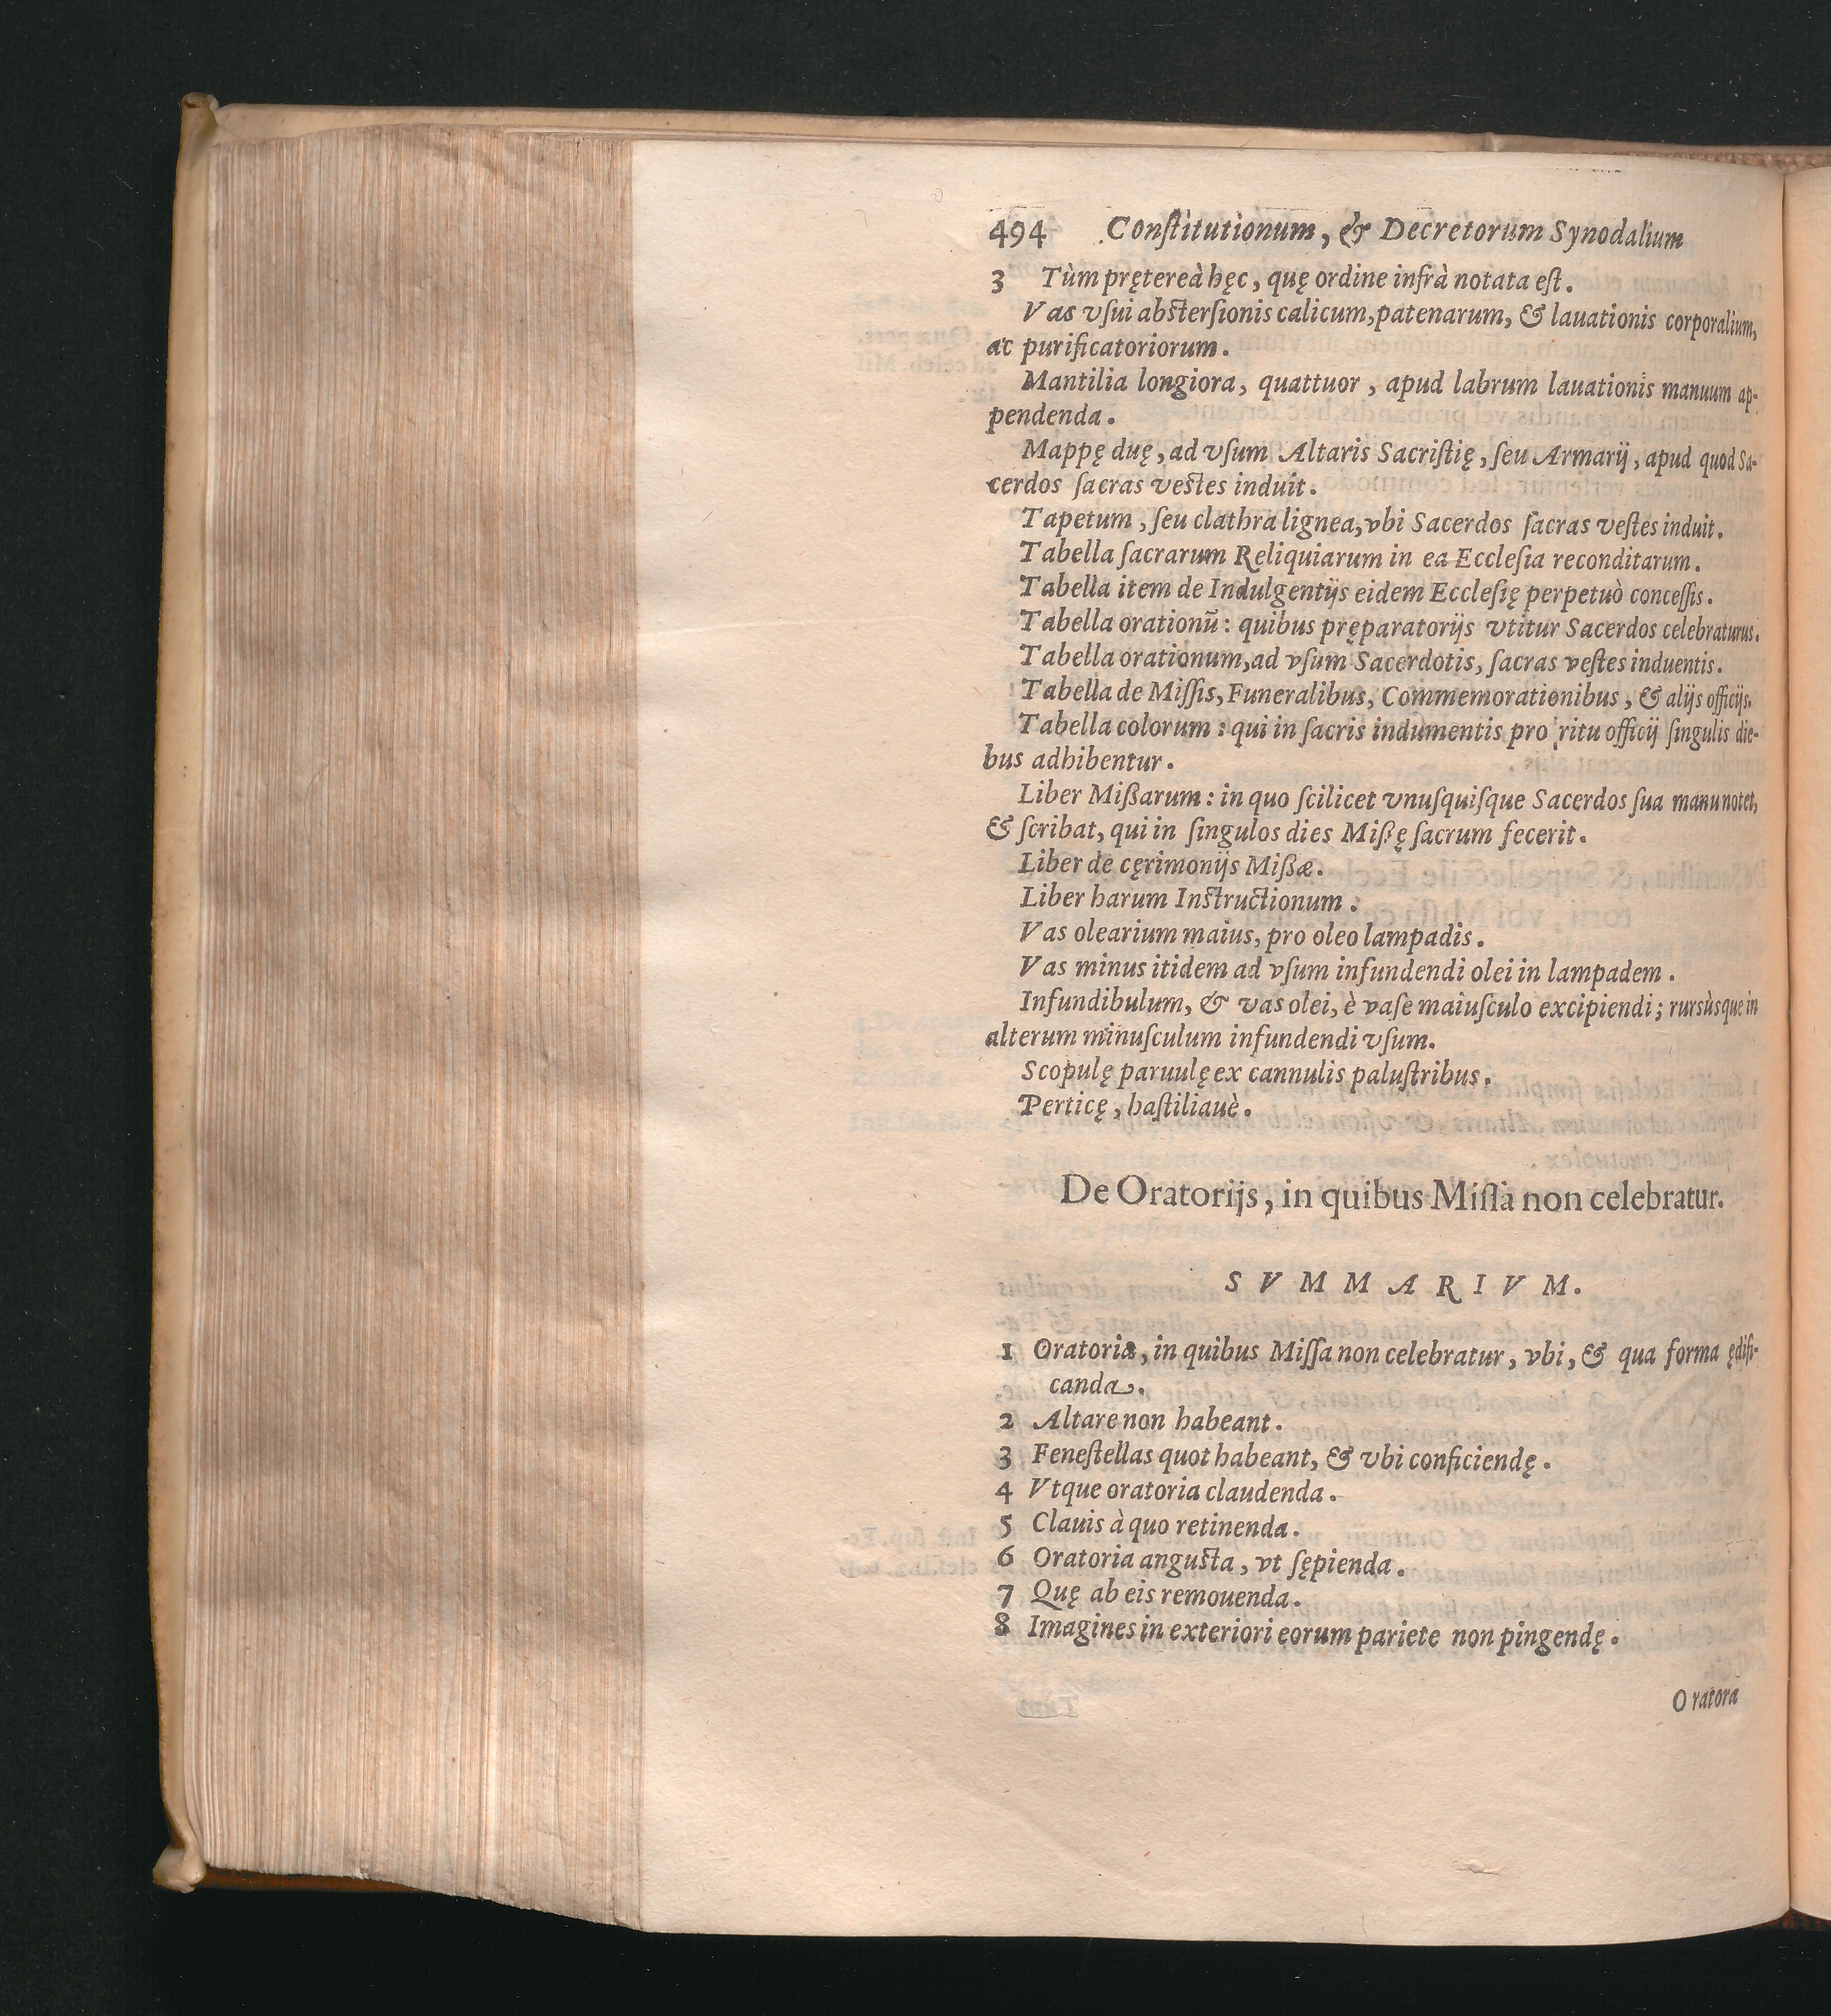 494 Conſtitutionum, & Decretorum Synodalium
3 Tùm pręterea hęc, quę ordine infrà notata eſt.
Vas vſui abſterſionis calicum, patenarum, & lauationis corporalium,
ac purificatoriorum.
Mantilia longiora, quattuor, apud labrum lauationis manuum ap-
pendenda.
Mappę duę, ad vſum Altaris Sacriſtię, ſeu Armarij, apud quod Sa-
cerdos ſacras veſtes induit.
Tapetum, ſeu clathra lignea, vbi Sacerdos ſacras veſtes induit.
Tabella ſacrarum Reliquiarum in ea Eccleſia reconditarum.
Tabella item de Indulgentijs eidem Eccleſię perpetuò conceſſis.
Tabella orationũ: quibus pręparatorijs vtitur Sacerdos celebraturus.
Tabella orationum, ad vſum Sacerdotis, ſacras veſtes induentis.
Tabella de Miſſis, Funeralibus, Commemorationibus, & alijs officijs.
Tabella colorum: qui in ſacris indumentis pro ritu officij ſingulis die-
bus adhibentur.
Liber Mißarum: in quo ſcilicet vnuſquiſque Sacerdos ſua manu notet,
& ſcribat, qui in ſingulos dies Mißę ſacrum fecerit.
Liber de cęrimonijs Mißæ.
Liber harum Inſtructionum.
Vas olearium maius, pro oleo lampadis.
Vas minus itidem ad vſum infundendi olei in lampadem.
Infundibulum, & vas olei, è vaſe maiuſculo excipiendi; rursùsque in
alterum minuſculum infundendi vſum.
Scopulę paruulę ex cannulis paluſtribus.
Perticę, haſtiliauè.
De Oratorijs, in quibus Miſſa non celebratur.
SVMMARIVM.
1 Oratoria, in quibus Miſſa non celebratur, vbi, & qua forma ędifi-
canda.
2 Altare non habeant.
3 Feneſtellas quot habeant, & vbi conficiendę.
4 Vtque oratoria claudenda.
5 Clauis à quo retinenda.
6 Oratoria anguſta, vt ſępienda.
7 Quę ab eis remouenda.
8 Imagines in exteriori eorum pariete non pingendę.
Oratora